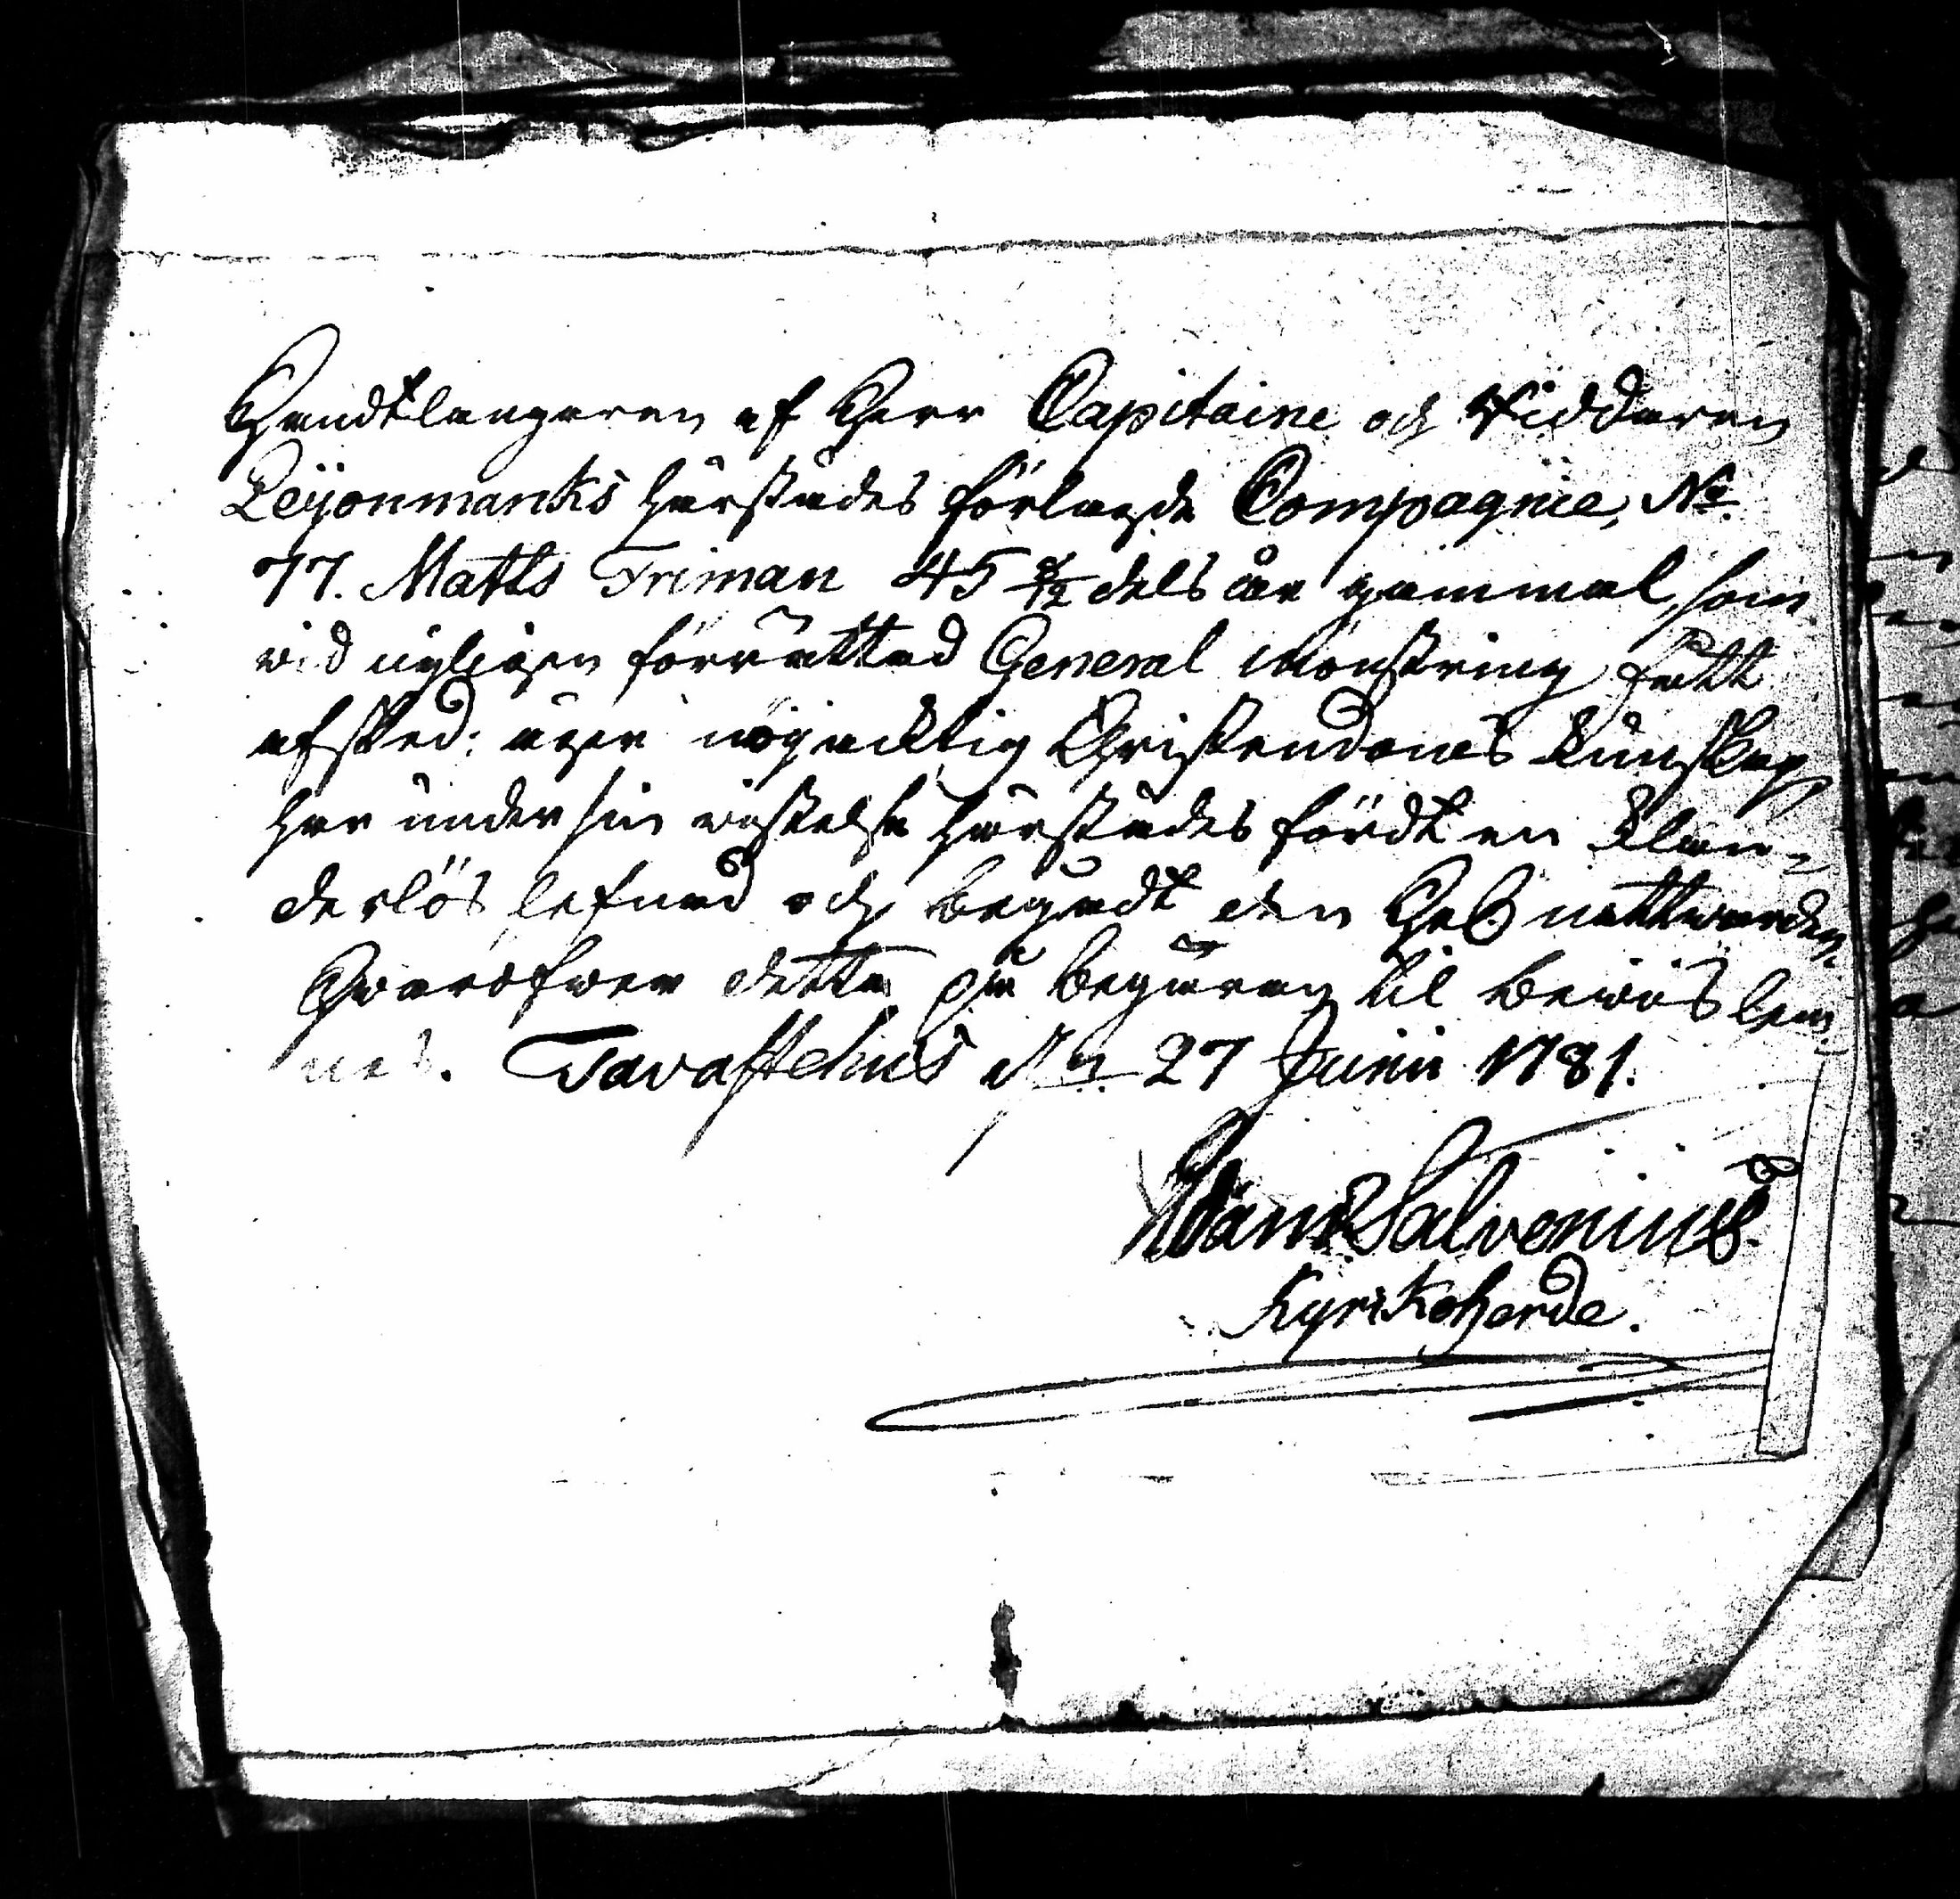 Handtlangaren af Herr Capitaine och Ridderen
Leijonmanks härstädes förlagde Compagnie, No
77. Matts Friman 45 8/12 dels åhr gammal, som
vid nyligen förrättad General Mönstring fått
afsked: äger nöjacktig Christendoms Kunskap
har under sin vistelse härstädes fördt en klan-
derlös lefnad och begådt den Hel. nattwarden
Hvaröfwer detta på begäran til bewis lem-
nas. Tavastehus d. 27 Junii 1781.
Salvenius
Kyrkoherde.